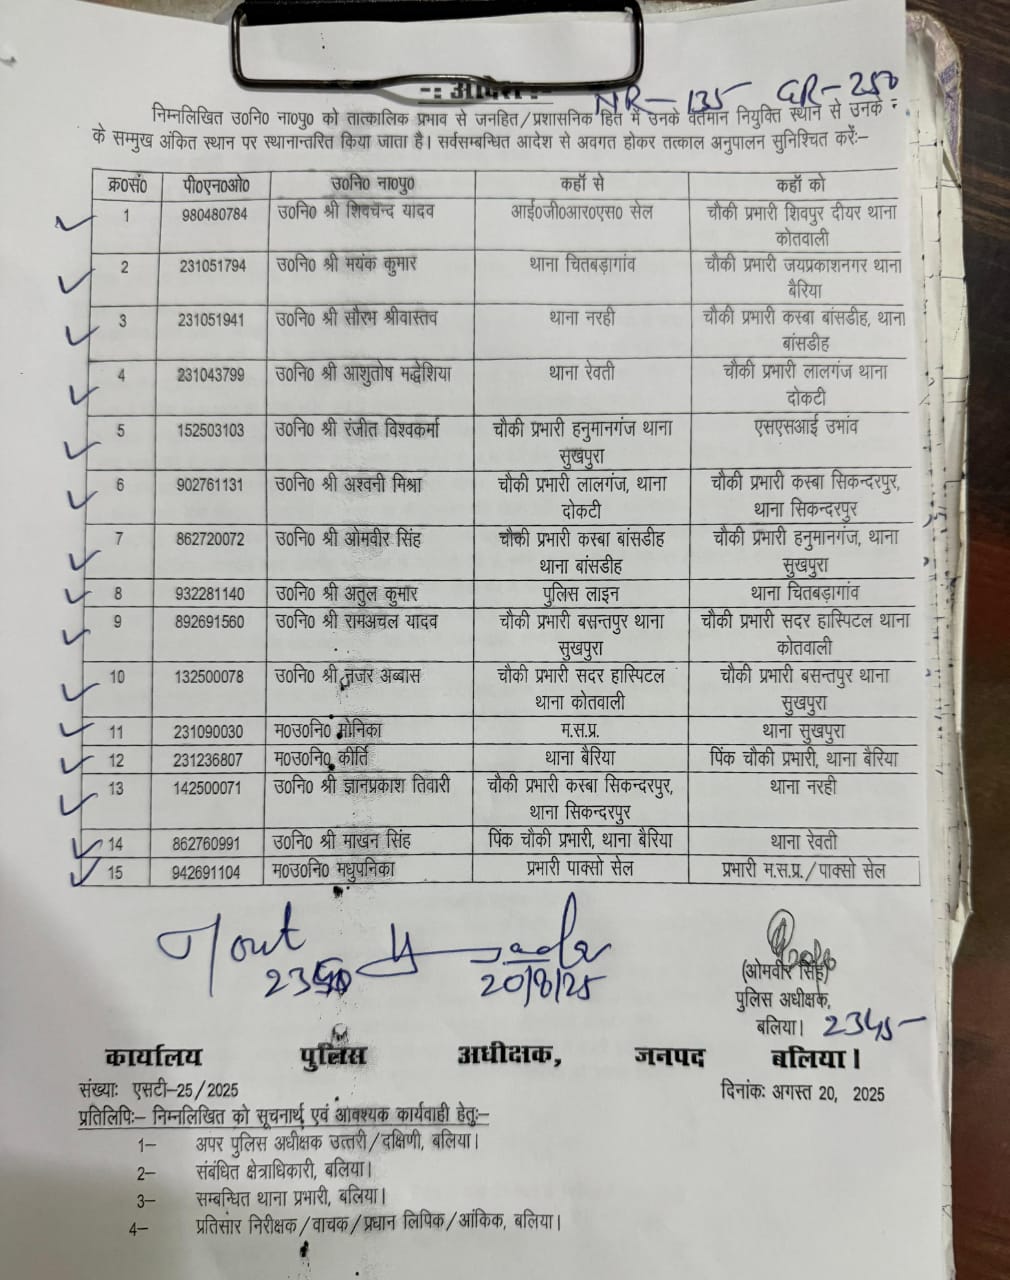 -: आदेश :-
NR – 135 GR – 250
निम्नलिखित उ०नि० ना०पु० को तात्कालिक प्रभाव से जनहित/प्रशासनिक हित में उनके वर्तमान नियुक्ति स्थान से उनके
के सम्मुख अंकित स्थान पर स्थानान्तरित किया जाता है। सर्वसम्बन्धित आदेश से अवगत होकर तत्काल अनुपालन सुनिश्चित करें:–
क्र०सं० पी०एन०ओ० उ०नि० ना०पु० कहाॅ से कहाॅ को
1 980480784 उ०नि० श्री शिवचन्द यादव आई०जी०आर०एस० सेल चौकी प्रभारी शिवपुर दीयर थाना
कोतवाली
2 231051794 उ०नि० श्री मयंक कुमार थाना चितबड़ागांव चौकी प्रभारी जयप्रकाशनगर थाना
बैरिया
3 231051941 उ०नि० श्री सौरभ श्रीवास्तव थाना नरही चौकी प्रभारी कस्बा बांसडीह, थाना
बांसडीह
4 231043799 उ०नि० श्री आशुतोष मद्धेशिया थाना रेवती चौकी प्रभारी लालगंज थाना
दोकटी
5 152503103 उ०नि० श्री रंजीत विश्वकर्मा चौकी प्रभारी हनुमानगंज थाना एसएसआई उभांव
सुखपुरा
6 902761131 उ०नि० श्री अश्वनी मिश्रा चौकी प्रभारी लालगंज, थाना चौकी प्रभारी कस्बा सिकन्दरपुर,
दोकटी थाना सिकन्दरपुर
7 862720072 उ०नि० श्री ओमवीर सिंह चौकी प्रभारी कस्बा बांसडीह चौकी प्रभारी हनुमानगंज, थाना
थाना बांसडीह सुखपुरा
8 932281140 उ०नि० श्री अतुल कुमार पुलिस लाइन थाना चितबड़ागांव
9 892691560 उ०नि० श्री रामअचल यादव चौकी प्रभारी बसन्तपुर थाना चौकी प्रभारी सदर हास्पिटल थाना
सुखपुरा कोतवाली
10 132500078 उ०नि० श्री नजर अब्बास चौकी प्रभारी सदर हास्पिटल चौकी प्रभारी बसन्तपुर थाना
थाना कोतवाली सुखपुरा
11 231090030 म०उ०नि० मोनिका म.स.प्र. थाना सुखपुरा
12 231236807 म०उ०नि० कीर्ति थाना बैरिया पिंक चौकी प्रभारी, थाना बैरिया
13 142500071 उ०नि० श्री ज्ञानप्रकाश तिवारी चौकी प्रभारी कस्बा सिकन्दरपुर, थाना नरही
थाना सिकन्दरपुर
14 862760991 उ०नि० श्री माखन सिंह पिंक चौकी प्रभारी, थाना बैरिया थाना रेवती
15 942691104 म०उ०नि० मधुपनिका प्रभारी पाक्सो सेल प्रभारी म.स.प्र./पाक्सो सेल
T/out
20/8/25
(ओमवीर सिंह)
पुलिस अधीक्षक,
बलिया। 2345–
कार्यालय पुलिस अधीक्षक, जनपद बलिया।
संख्याः एसटी–25/2025 दिनांकः अगस्त 20, 2025
प्रतिलिपिः– निम्नलिखित को सूचनार्थ एवं आवश्यक कार्यवाही हेतुः–
1– अपर पुलिस अधीक्षक उत्तरी/दक्षिणी, बलिया।
2– संबंधित क्षेत्राधिकारी, बलिया।
3– सम्बन्धित थाना प्रभारी, बलिया।
4– प्रतिसार निरीक्षक/वाचक/प्रधान लिपिक/आंकिक, बलिया।